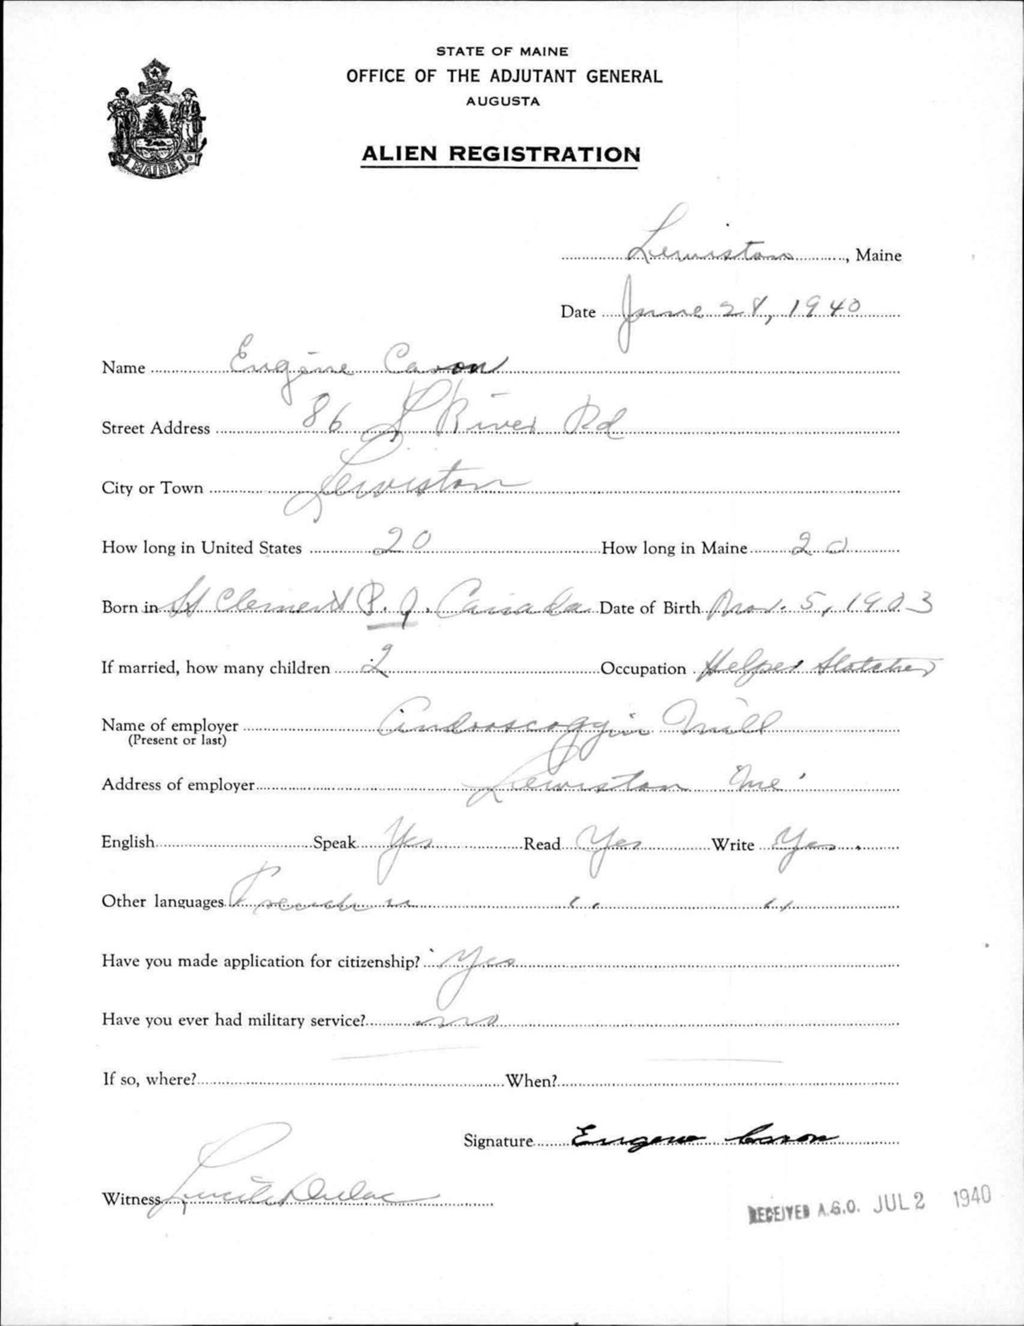 STATE OF MAINE
OFFICE OF THE ADJUTANT GENERAL
AUGUSTA
ALIEN REGISTRATION
MAINE
Lewiston, Maine
Date June 28, 1940
Name Eugène Caron
Street Address 86 S River Rd
City or Town Lewiston
How long in United States 20 How long in Maine 20
Born in St Clement P.Q. Canada Date of Birth Nov. 5, 1903
If married, how many children 2 Occupation Helper
Name of employer Androscoggin Mill
(Present or last)
Address of employer Lewiston Me.
English Speak Yes Read Yes Write Yes.
Other languages French " " "
Have you made application for citizenship? Yes
Have you ever had military service? no
If so, where? When?
Signature Eugene Caron
Witness Lucile Dulac
RECEIVED A.G.O. JUL 2 1940